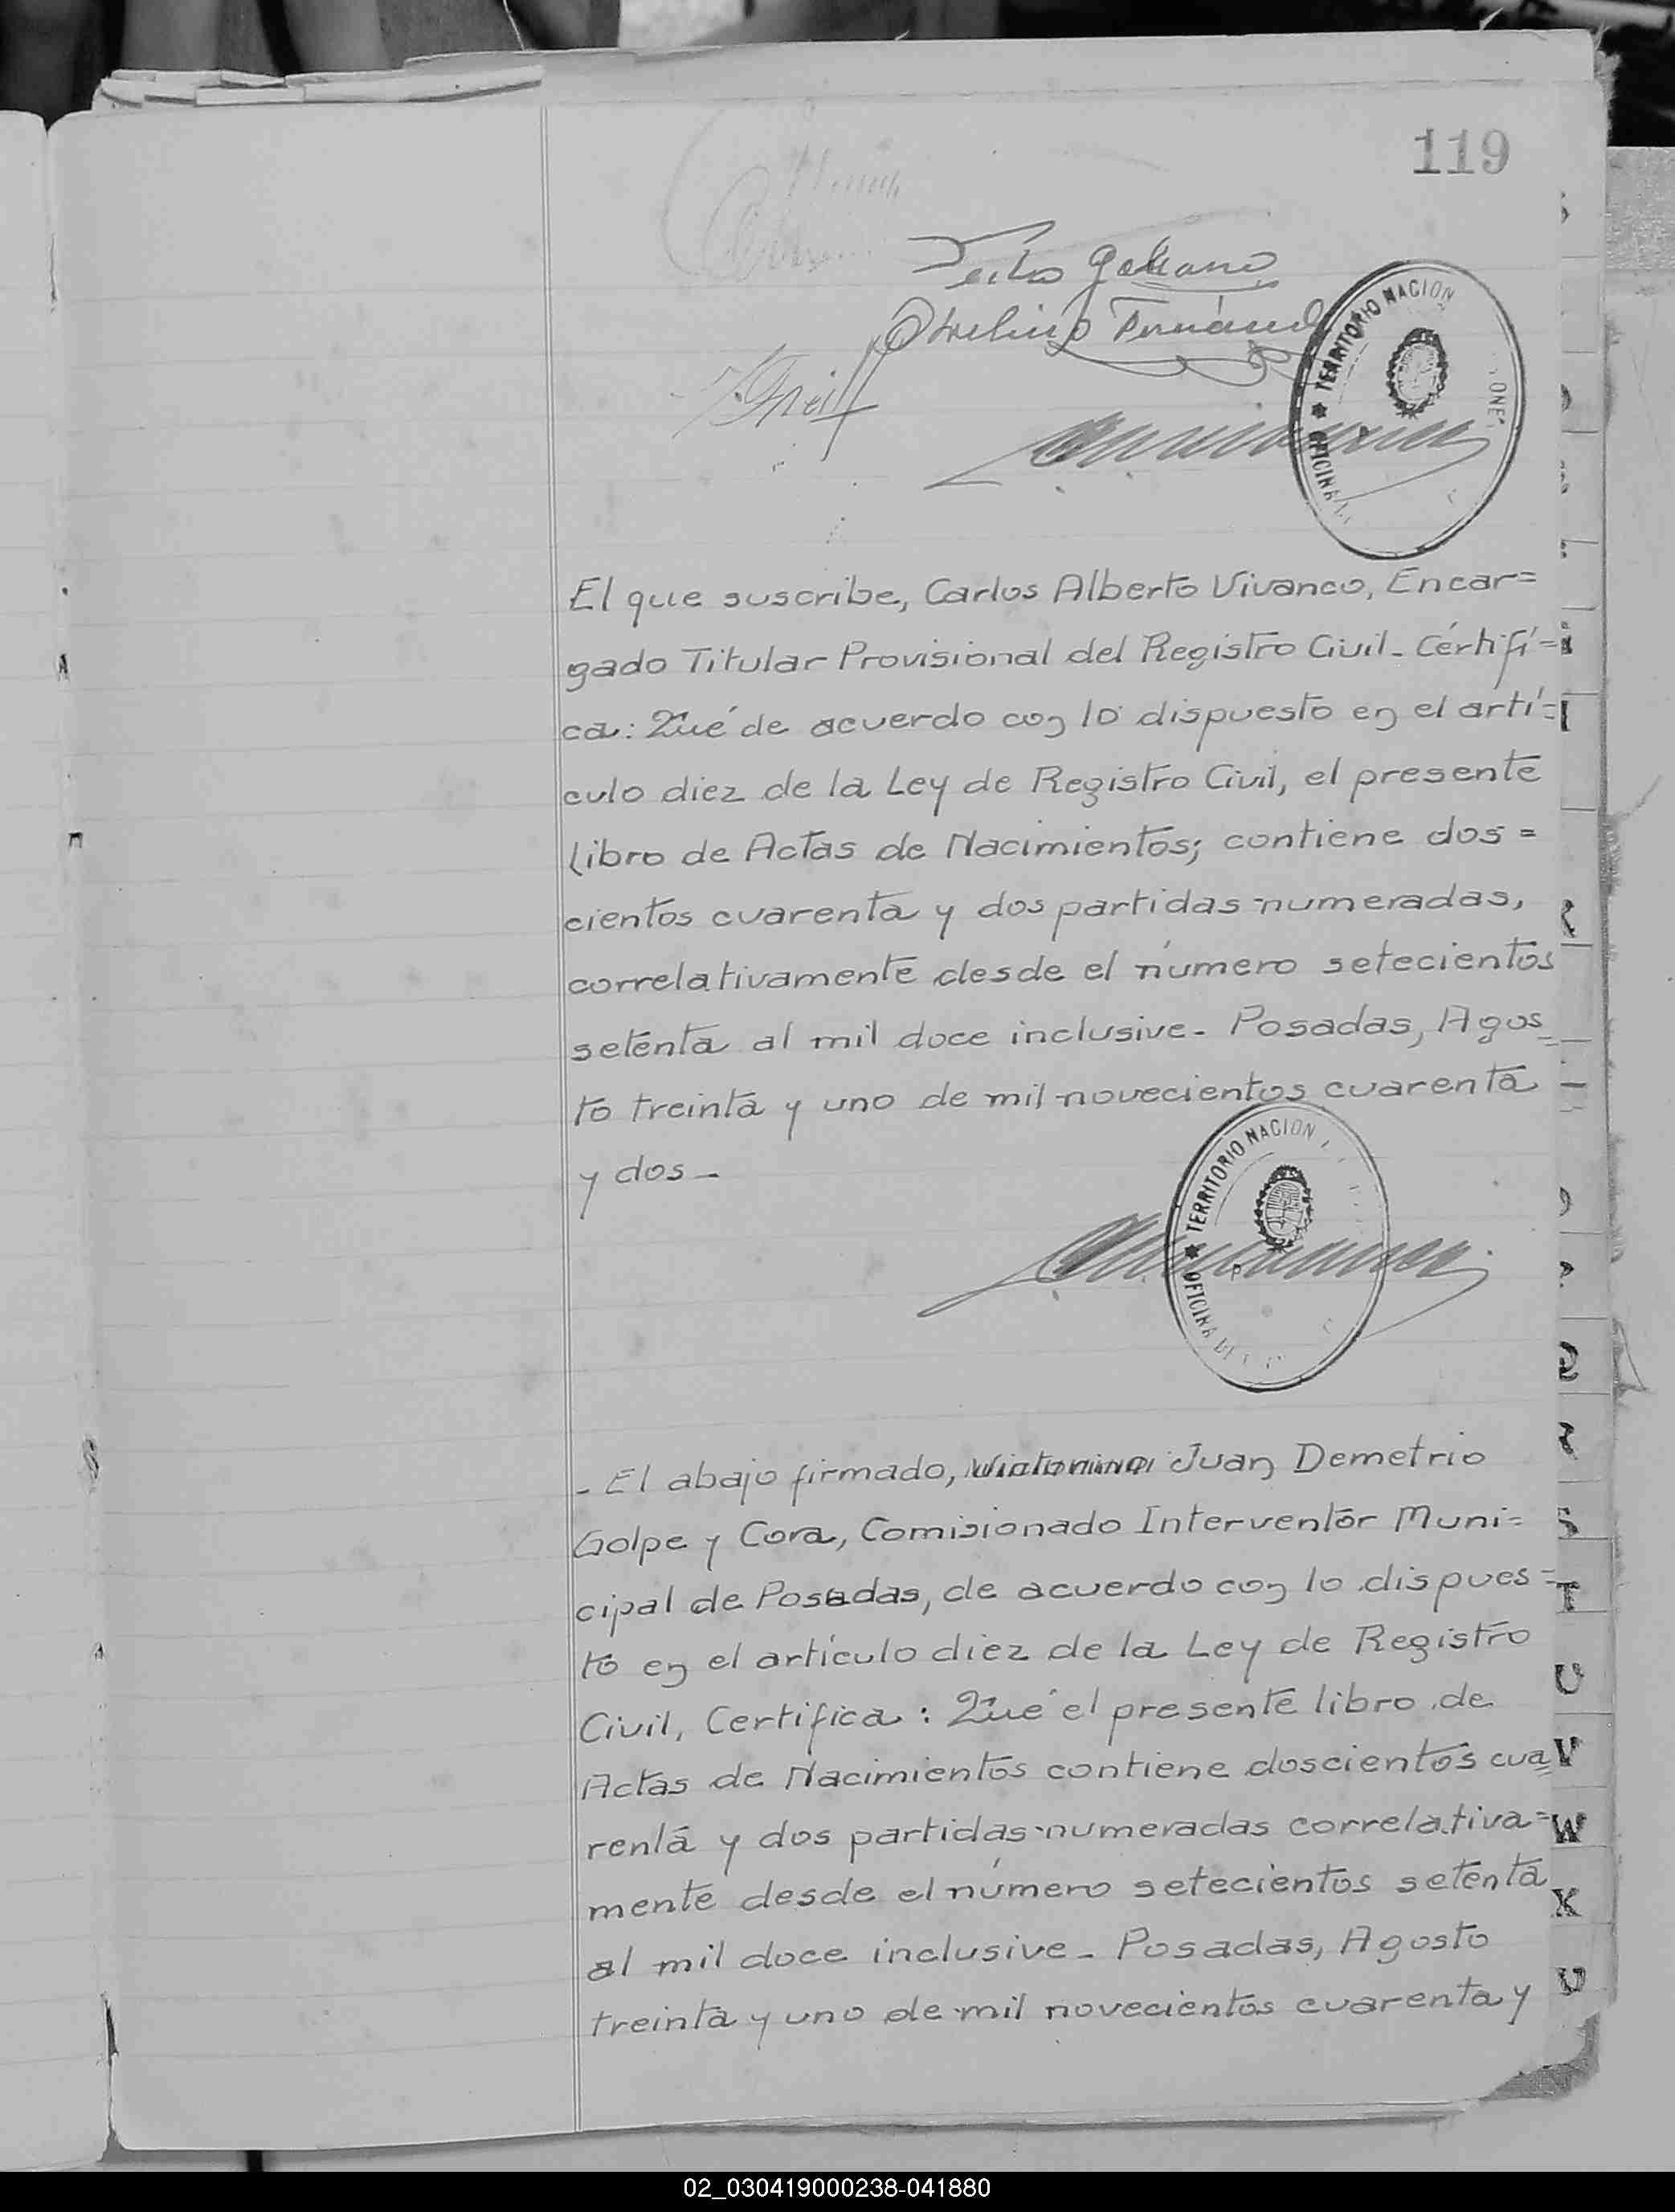 119
Galeano
TERRITORIO NACION ONES
OFICINA
El que suscribe, Carlos Alberto Vivanco, Encar=
gado Titular Provisional del Registro Civil_ Cértifí=
ca: Qué de acuerdo con lo dispuesto en el artí=
culo diez de la Ley de Registro Civil, el presente
libro de Actas de Nacimientos; contiene dos=
cientos cuarenta y dos partidas numeradas,
correlativamente desde el número setecientos
setenta al mil doce inclusive_ Posadas, Agos=
to treinta y uno de mil novecientos cuarenta
y dos_
TERRITORIO NACION
OFICINA DE
- El abajo firmado, Juan Demetrio
Golpe y Cora, Comisionado Interventor Muni=
cipal de Posadas, de acuerdo con lo dispues=
to en el artículo diez de la Ley de Registro
Civil, Certifica: Qué el presente libro de
Actas de Nacimientos contiene doscientos cua=
renta y dos partidas numeradas correlativa=
mente desde el número setecientos setenta
al mil doce inclusive_ Posadas, Agosto
treinta y uno de mil novecientos cuarenta y
Q
R
S
T
U
V
W
X
02_030419000238-041880